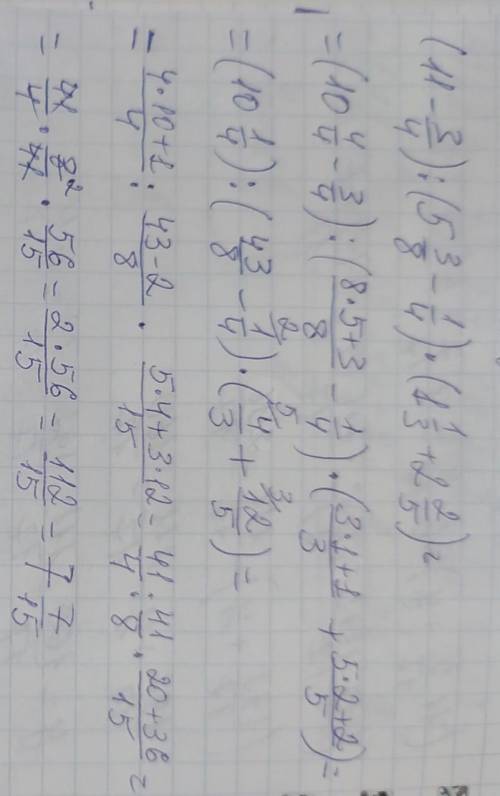 (11 - 3/4) : (5 3/8 - 1/4) · (1 1/3 + 2 2/5) =
= (10 4/4 - 3/4) : ((8·5+3)/8 - 1/4) · ((3·1+1)/3 + (5·2+2)/5) =
= (10 1/4) : (43/8 - 1/4 2) · (4/3 5 + 12/5 3) =
= (4·10+1)/4 : (43-2)/8 · (5·4+3·12)/15 = 41/4 : 41/8 · (20+36)/15 =
= 41/4 · 8 2/41 · 56/15 = 2·56/15 = 112/15 = 7 7/15